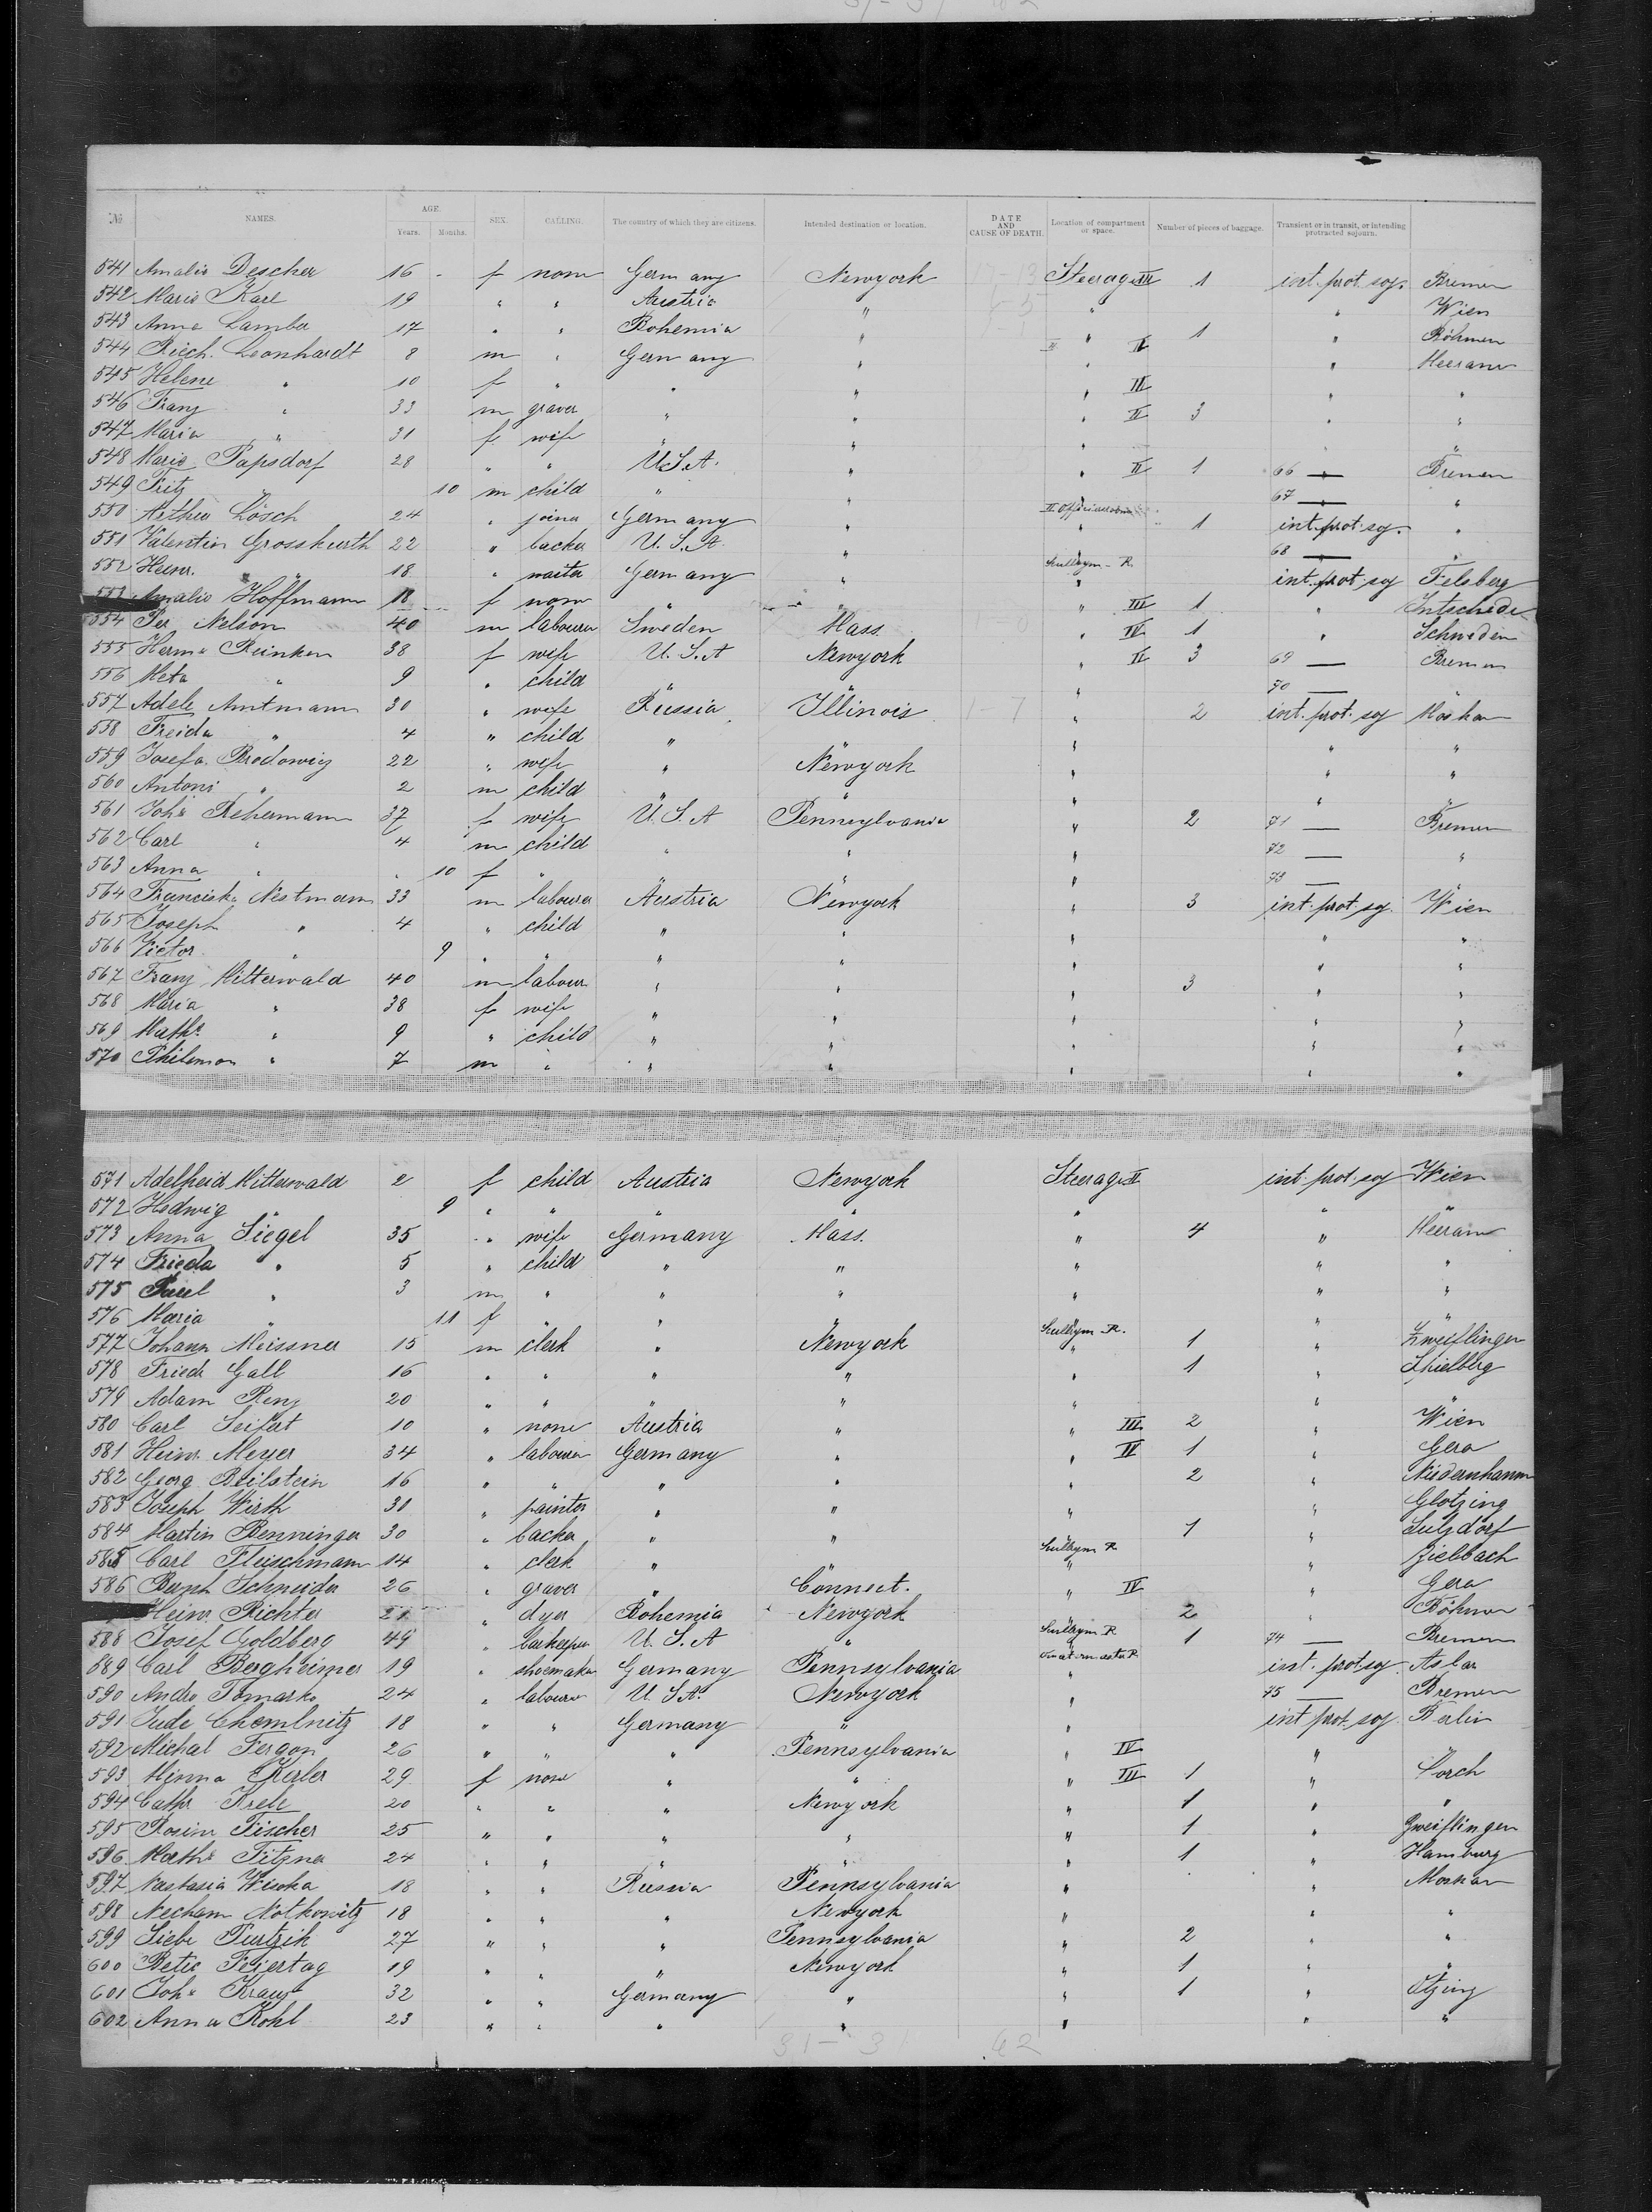 No. NAMES. AGE. Years. Months. SEX. CALLING. The country of which they are citizens. Intended destination or location. DATE AND CAUSE OF DEATH. Location of compartment or space. Number of pieces of baggage. Transient or in transit, or intending protracted sojourn.
541 Amalie Descher 16 - f none Germany Newyork Steerage III 1 int. prot. soj. Bremen
542 Marie Karl 19 " " Austria " " " Wien
543 Anna Lamber 17 " " Bohemia " " 1 " Böhmen
544 Riech. Leonhardt 8 m " Germany " " II " Meerane
545 Helene " 10 f " " " " III " "
546 Franz " 33 m graver " " " II 3 " "
547 Maria " 31 f wife " " " " "
548 Marie Papsdorf 28 " " U.S.A. " " II 1 66 — Bremen
549 Fritz " 10 m child " " " 67 — "
550 Arthur Lösch 24 " joiner Germany " " 1 int. prot. soj. "
551 Valentin Grosskurth 22 " backer U.S.A. " " 68 — "
552 Heinr. " 18 " waiter Germany " " int. prot. soj Felsberg
553 Amalie Hoffmann 18 f none " " " III 1 " Intschede
554 Per Nelson 40 m labourer Sweden Mass. " IV 1 " Schweden
555 Herm. Reinken 38 f wife U.S.A Newyork " II 3 69 — Bremen
556 Meta " 9 " child " " " 70 — "
557 Adele Amtmann 30 " wife Russia Illinois " 2 int. prot. soj Moskau
558 Freida " 4 " child " " " " "
559 Josefa Brodowicz 22 " wife " Newyork " " "
560 Antoni " 2 m child " " " " "
561 Joh. Rehermann 37 f wife U.S.A Pennsylvania " 2 71 — Bremen
562 Carl " 4 m child " " " 72 — "
563 Anna " 10 f " " " " 73 — "
564 Franciska Nestmann 33 m labourer Austria Newyork " 3 int. prot. soj. Wien
565 Joseph " 4 " child " " " " "
566 Victor " 9 " " " " " " "
567 Franz Mitterwald 40 m labour " " " 3 " "
568 Maria " 38 f wife " " " " "
569 Math. " 9 " child " " " " "
570 Philemon " 7 m " " " " " "
571 Adelheid Mitterwald 2 f child Austria Newyork Steerage II int. prot. soj Wien
572 Hedwig " 9 " " " " " " "
573 Anna Siegel 35 " wife Germany Mass. " 4 " Meeran
574 Frieda " 5 " child " " " " "
575 Paul " 3 m " " " " " "
576 Maria " 11 f " " " " " "
577 Johann Meissner 15 m clerk " Newyork " 1 " Zweiflingen
578 Friedr Gall 16 " " " " " 1 " Spielberg
579 Adam Renz 20 " " " " " " "
580 Carl Seifert 10 " none Austria " " III 2 " Wien
581 Heinr. Meyer 34 " labourer Germany " " IV 1 " Gera
582 Georg Beilstein 16 " " " " " 2 " Niedernhamm
583 Joseph Wirth 31 " painter " " " " Glotzing
584 Martin Benninger 30 " backer " " " 1 " Sulzdorf
585 Carl Fleischmann 14 " clerk " " " " Zielbach
586 Bernh Schneider 26 " graver " Connect. " IV " Gera
Heinr Richter 21 " dyer Bohemia Newyork 2 " Böhmen
588 Josef Goldberg 49 " barkeeper U.S.A " " 1 74 — Bremen
589 Carl Bergheimer 19 " shoemaker Germany Pennsylvania " int. prot soj Aslar
590 Andro Tomarko 24 " labourer U.S.A. Newyork " 75 — Bremen
591 Jude Chemlnitz 18 " " Germany " " int prot. soj. Berlin
592 Michal Fergon 26 " " " Pennsylvania " IV " "
593 Minna Kurler 29 f none " " " III 1 " Lorch
594 Cathr Krele 20 " " " Newyork " 1 " "
595 Rosine Fischer 25 " " " " " 1 " Zweiflingen
596 Math. Fitzner 24 " " " " " 1 " Hamburg
597 Nastasia Wisoka 18 " " Russia Pennsylvania " " Moskau
598 Necham Notkowitz 18 " " " Newyork " " "
599 Liebe Purtzik 27 " " " Pennsylvania " 2 " "
600 Betie Feiertag 19 " " " Newyork " 1 " "
601 Joh. Kraus 32 " " Germany " " 1 " Otzing
602 Anna Kohl 23 " " " " " " "
31 - 31 62